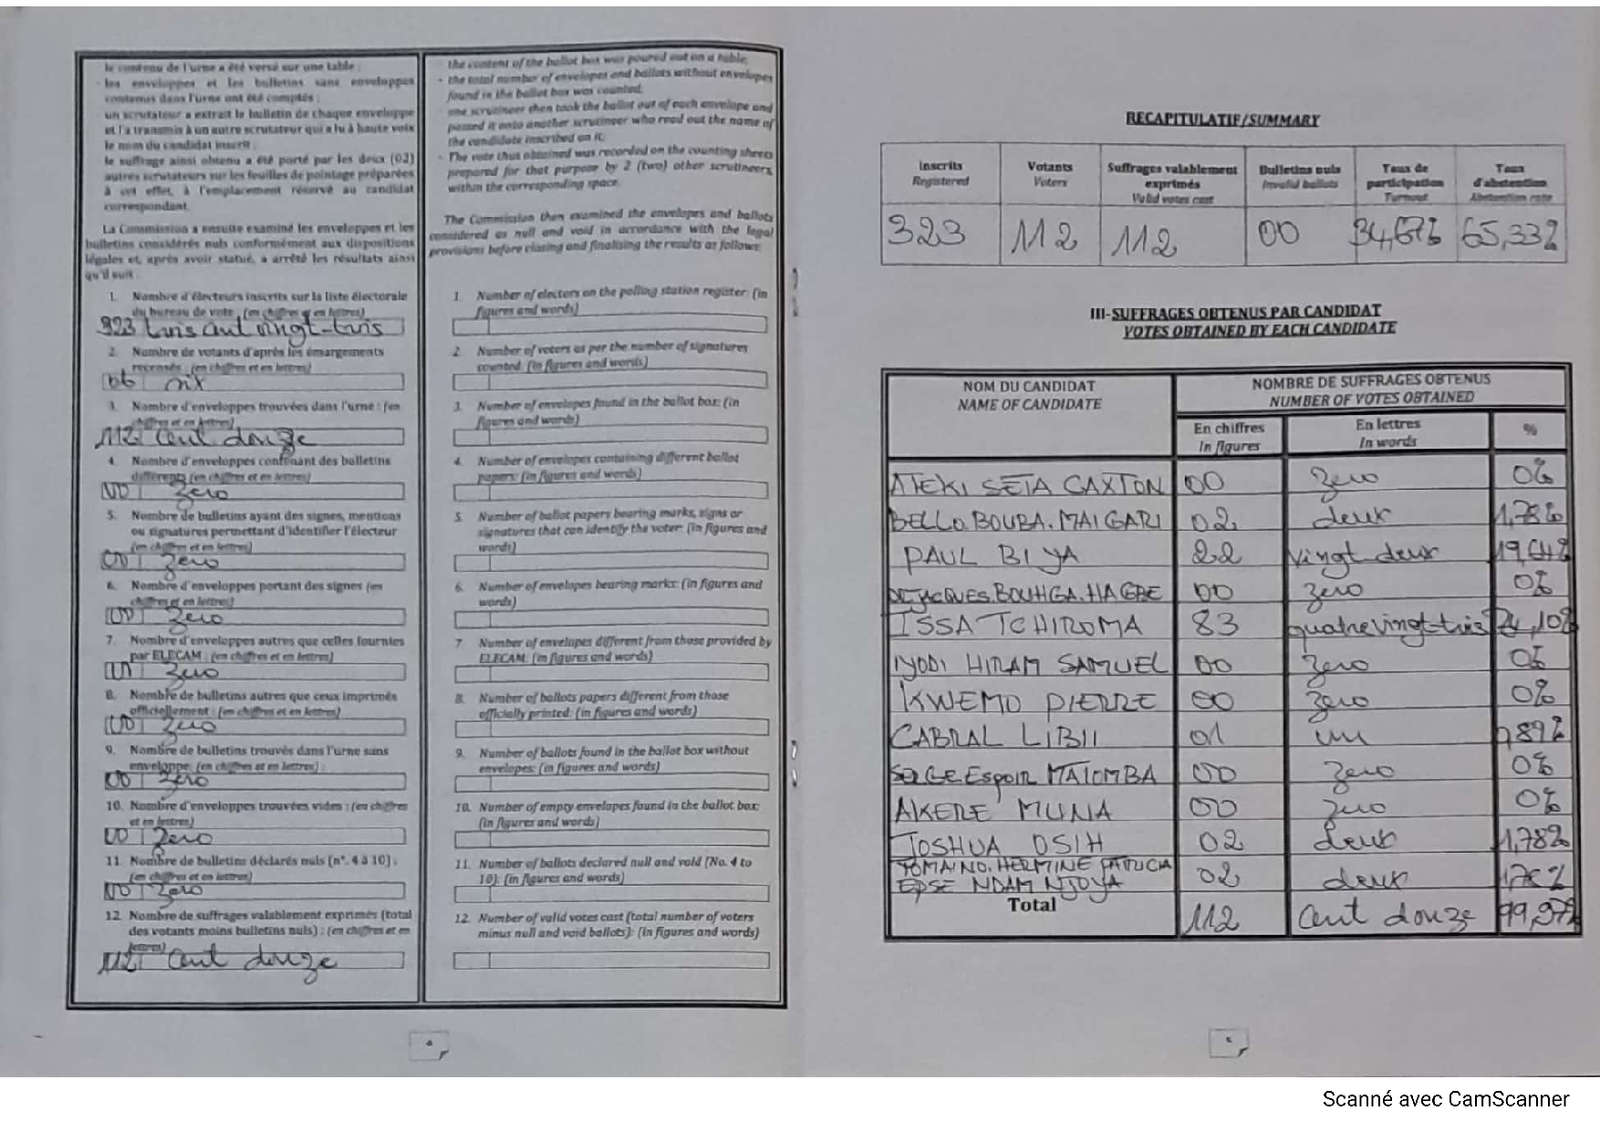 le contenu de l'urne a été versé sur une table ;
- les enveloppes et les bulletins sans enveloppes
contenus dans l'urne ont été comptés ;
un scrutateur a extrait le bulletin de chaque enveloppe
et l'a transmis à un autre scrutateur qui a lu à haute voix
le nom du candidat inscrit ;
le suffrage ainsi obtenu a été porté par les deux (02)
autres scrutateurs sur les feuilles de pointage préparées
à cet effet, à l'emplacement réservé au candidat
correspondant.
La Commission a ensuite examiné les enveloppes et les
bulletins considérés nuls conformément aux dispositions
légales et, après avoir statué, a arrêté les résultats ainsi
qu'il suit :
1. Nombre d'électeurs inscrits sur la liste électorale
du bureau de vote : (en chiffres et en lettres)
323 trois cent vingt-trois
2. Nombre de votants d'après les émargements
recensés : (en chiffres et en lettres)
06 six
3. Nombre d'enveloppes trouvées dans l'urne : (en
chiffres et en lettres)
112 Cent douze
4. Nombre d'enveloppes contenant des bulletins
différents : (en chiffres et en lettres)
00 Zero
5. Nombre de bulletins ayant des signes, mentions
ou signatures permettant d'identifier l'électeur
(en chiffres et en lettres)
00 Zero
6. Nombre d'enveloppes portant des signes (en
chiffres et en lettres)
00 Zero
7. Nombre d'enveloppes autres que celles fournies
par ELECAM : (en chiffres et en lettres)
00 Zero
8. Nombre de bulletins autres que ceux imprimés
officiellement : (en chiffres et en lettres)
00 Zero
9. Nombre de bulletins trouvés dans l'urne sans
enveloppe: (en chiffres et en lettres) :
00 Zero
10. Nombre d'enveloppes trouvées vides : (en chiffres
et en lettres)
00 Zero
11. Nombre de bulletins déclarés nuls (n°. 4 à 10) :
(en chiffres et en lettres)
00 Zero
12. Nombre de suffrages valablement exprimés (total
des votants moins bulletins nuls) : (en chiffres et en
lettres)
112 Cent douze
- the content of the ballot box was poured out on a table;
- the total number of envelopes and ballots without envelopes
found in the ballot box was counted;
one scrutineer then took the ballot out of each envelope and
passed it onto another scrutineer who read out the name of
the candidate inscribed on it;
- The vote thus obtained was recorded on the counting sheets
prepared for that purpose by 2 (two) other scrutineers,
within the corresponding space.
The Commission then examined the envelopes and ballots
considered as null and void in accordance with the legal
provisions before closing and finalising the results as follows:
1. Number of electors on the polling station register: (in
figures and words)
2. Number of voters as per the number of signatures
counted: (in figures and words)
3. Number of envelopes found in the ballot box: (in
figures and words)
4. Number of envelopes containing different ballot
papers: (in figures and words)
5. Number of ballot papers bearing marks, signs or
signatures that can identify the voter: (in figures and
words)
6. Number of envelopes bearing marks: (in figures and
words)
7 Number of envelopes different from those provided by
ELECAM: (in figures and words)
8. Number of ballots papers different from those
officially printed: (in figures and words)
9. Number of ballots found in the ballot box without
envelopes: (in figures and words)
10. Number of empty envelopes found in the ballot box:
(in figures and words)
11. Number of ballots declared null and void (No. 4 to
10): (in figures and words)
12. Number of valid votes cast (total number of voters
minus null and void ballots): (in figures and words)
RECAPITULATIF/SUMMARY
Inscrits Registered Votants Voters Suffrages valablement exprimés Valid votes cast Bulletins nuls Invalid ballots Taux de participation Turnout Taux d'abstention Abstention rate
323 112 112 00 34,67% 65,33%
III-SUFFRAGES OBTENUS PAR CANDIDAT
VOTES OBTAINED BY EACH CANDIDATE
NOM DU CANDIDAT NOMBRE DE SUFFRAGES OBTENUS
NAME OF CANDIDATE NUMBER OF VOTES OBTAINED
En chiffres En lettres %
In figures In words
ATEKI SETA CAXTON 00 Zero 0%
BELLO.BOUBA.MAIGARI 02 deux 1,78%
PAUL BIYA 22 vingt deux 19,64%
JACQUES.BOUHGA.HAGBE 00 zero 0%
ISSA TCHIROMA 83 quatre vingt-trois 74,10%
IYODI HIRAM SAMUEL 00 Zero 0%
KWEMO PIERRE 00 Zero 0%
CABRAL LIBII 01 un 0,89%
SERGE Espoir MATOMBA 00 Zero 0%
AKERE MUNA 00 Zero 0%
JOSHUA OSIH 02 deux 1,78%
TOMAINO.HERMINE PATRICIA
EPSE NDAM NJOYA 02 deux 1,78%
Total 112 Cent douze 99,97%
4
5
Scanné avec CamScanner